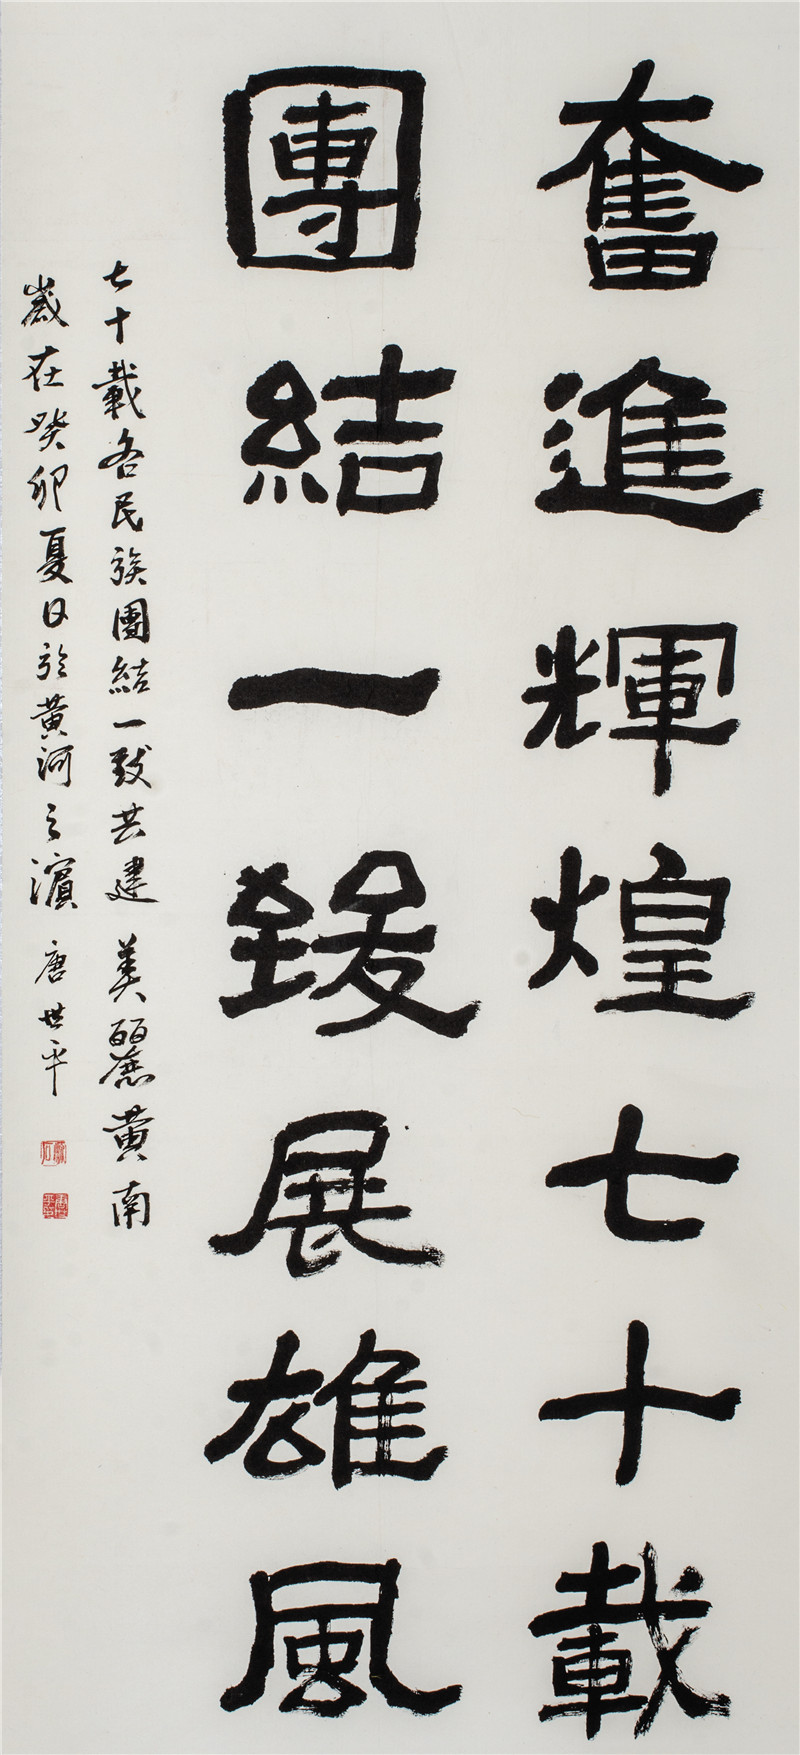 奮進輝煌七十載
團結一致展雄風
七十載各民族團結一致共建美麗黄南
歲在癸卯夏日於黄河之濱 唐世平